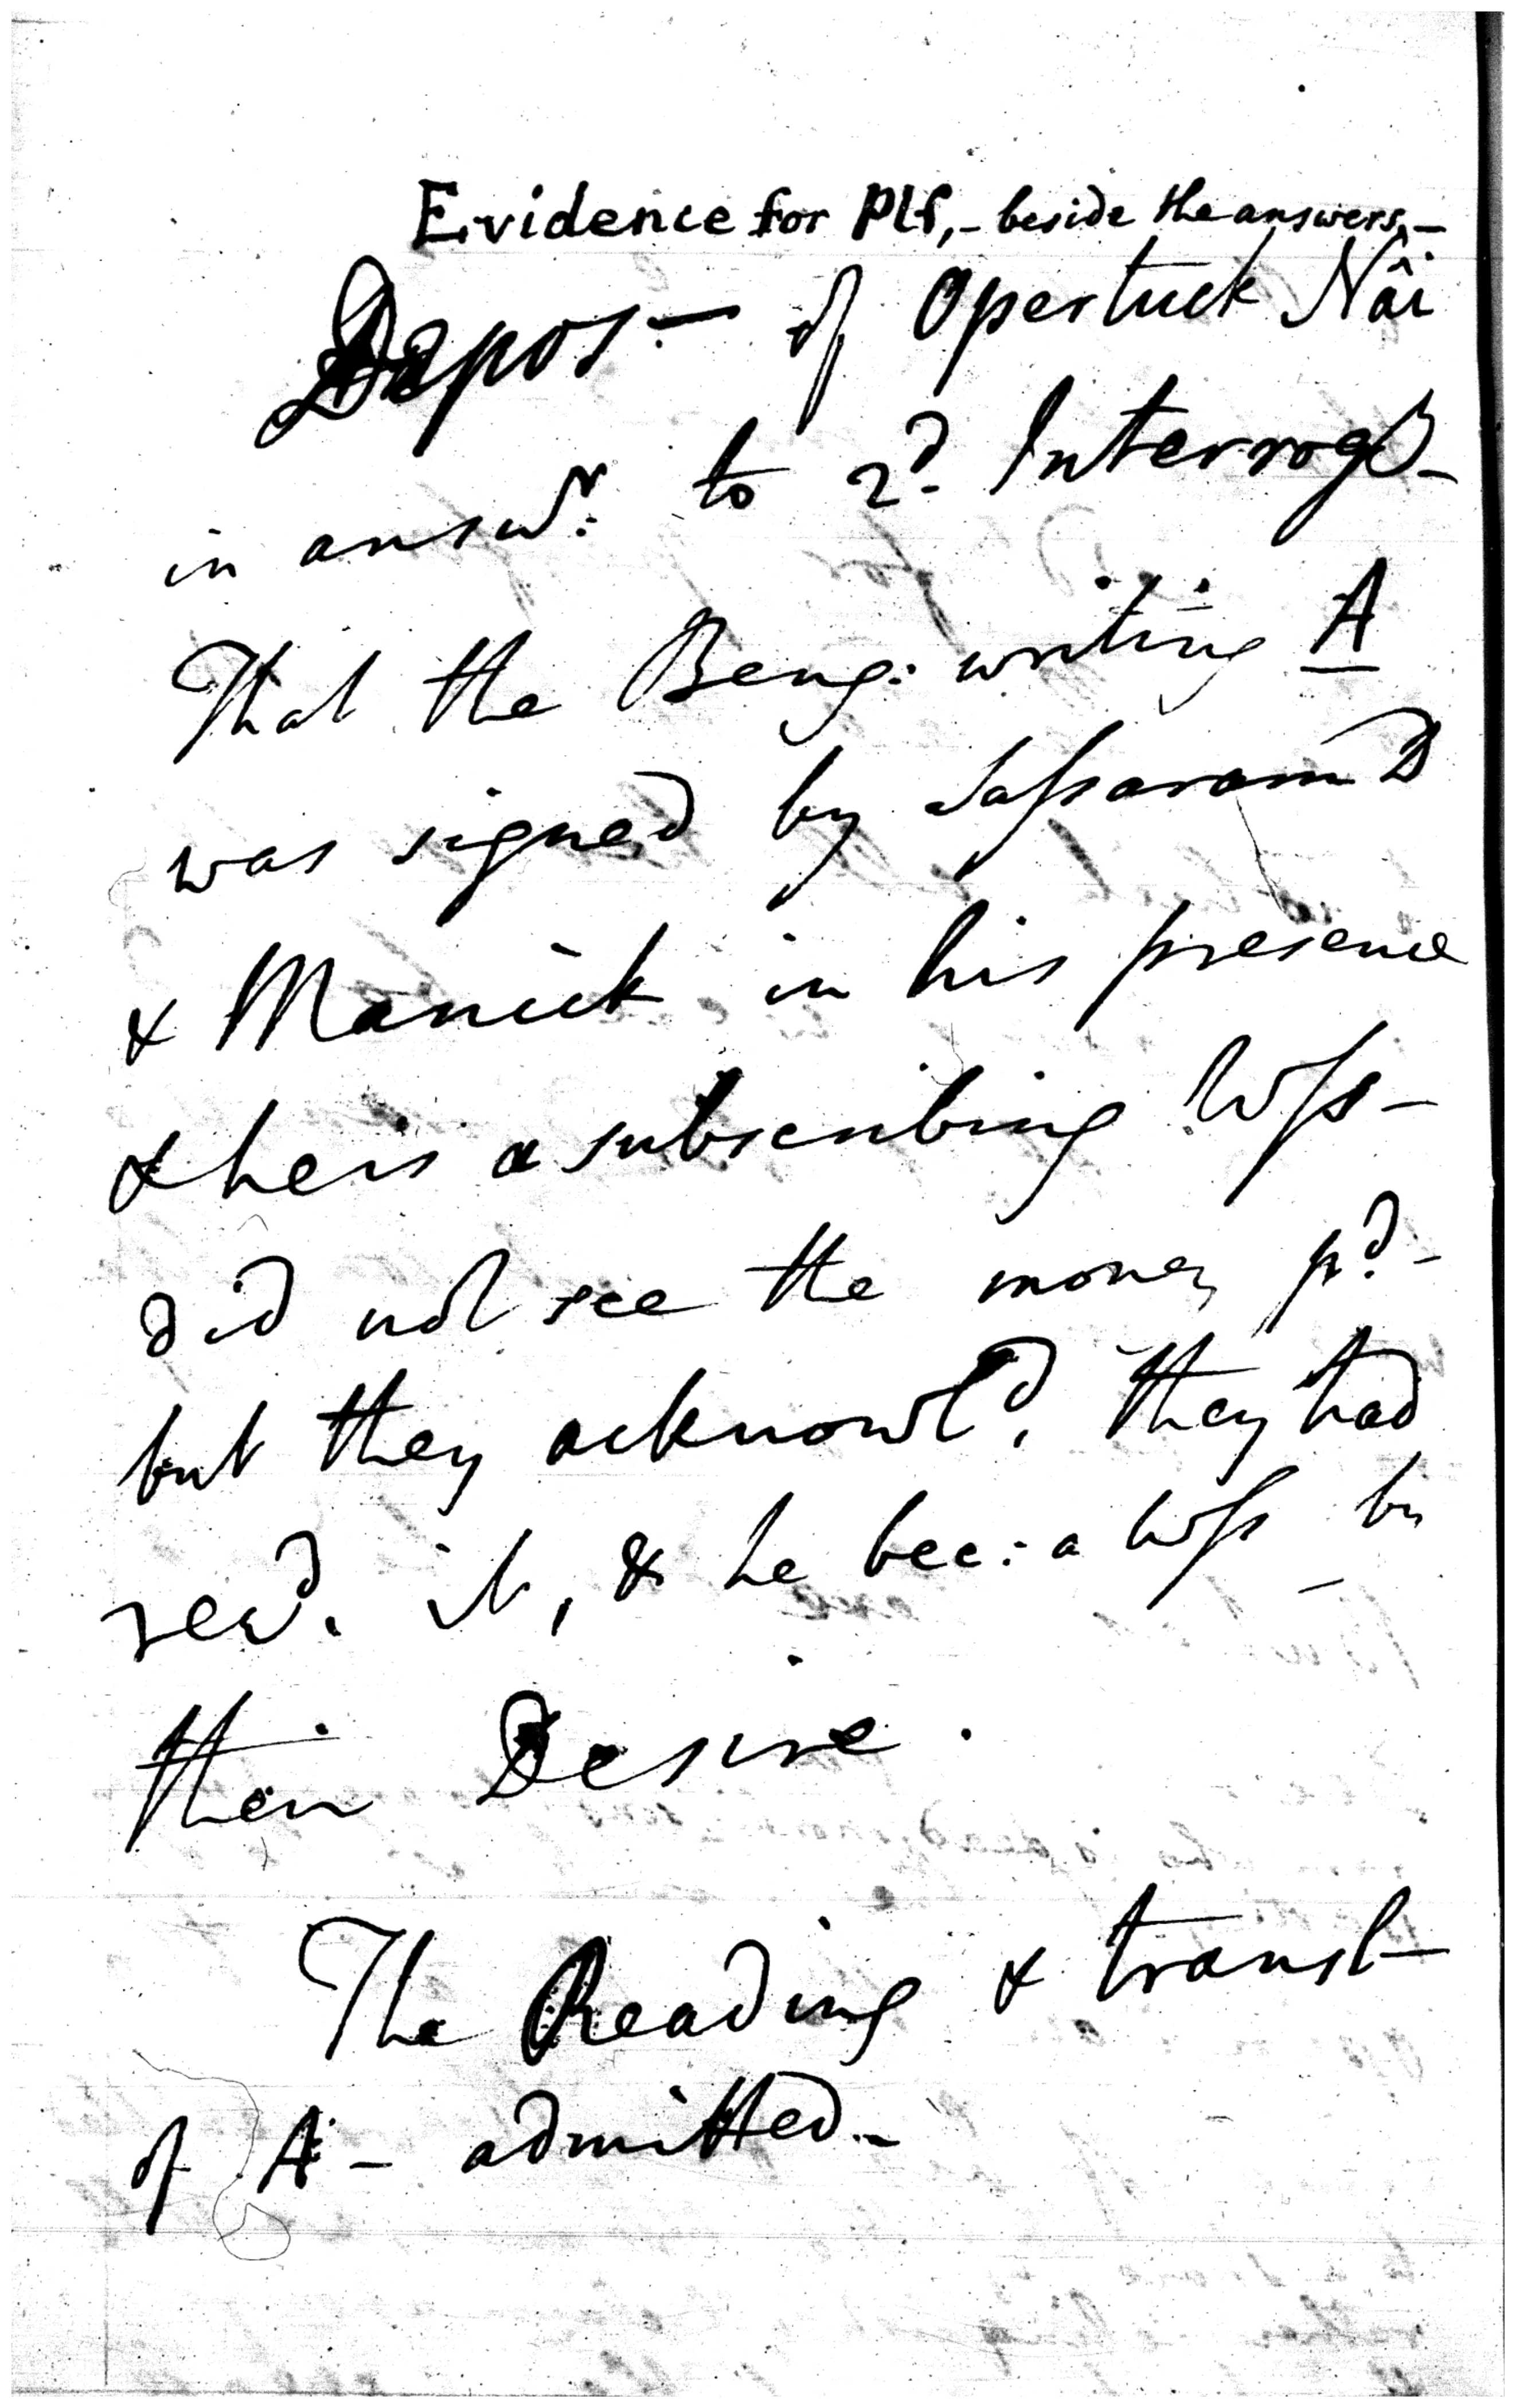 Evidence for Plf, - beside the answers, -
Depos - of Opertuck Nâi
in answr. to 2d. Interrog -
That the Beng: writing A
was signed by Sassaram D
& Manick in his presence
& he is a subscribing Wss -
did not see the money pd. -
but they acknowld. they had
recd. it, & he bec: a Wss by
their Desire.
The Reading & transl -
of A - admitted. -